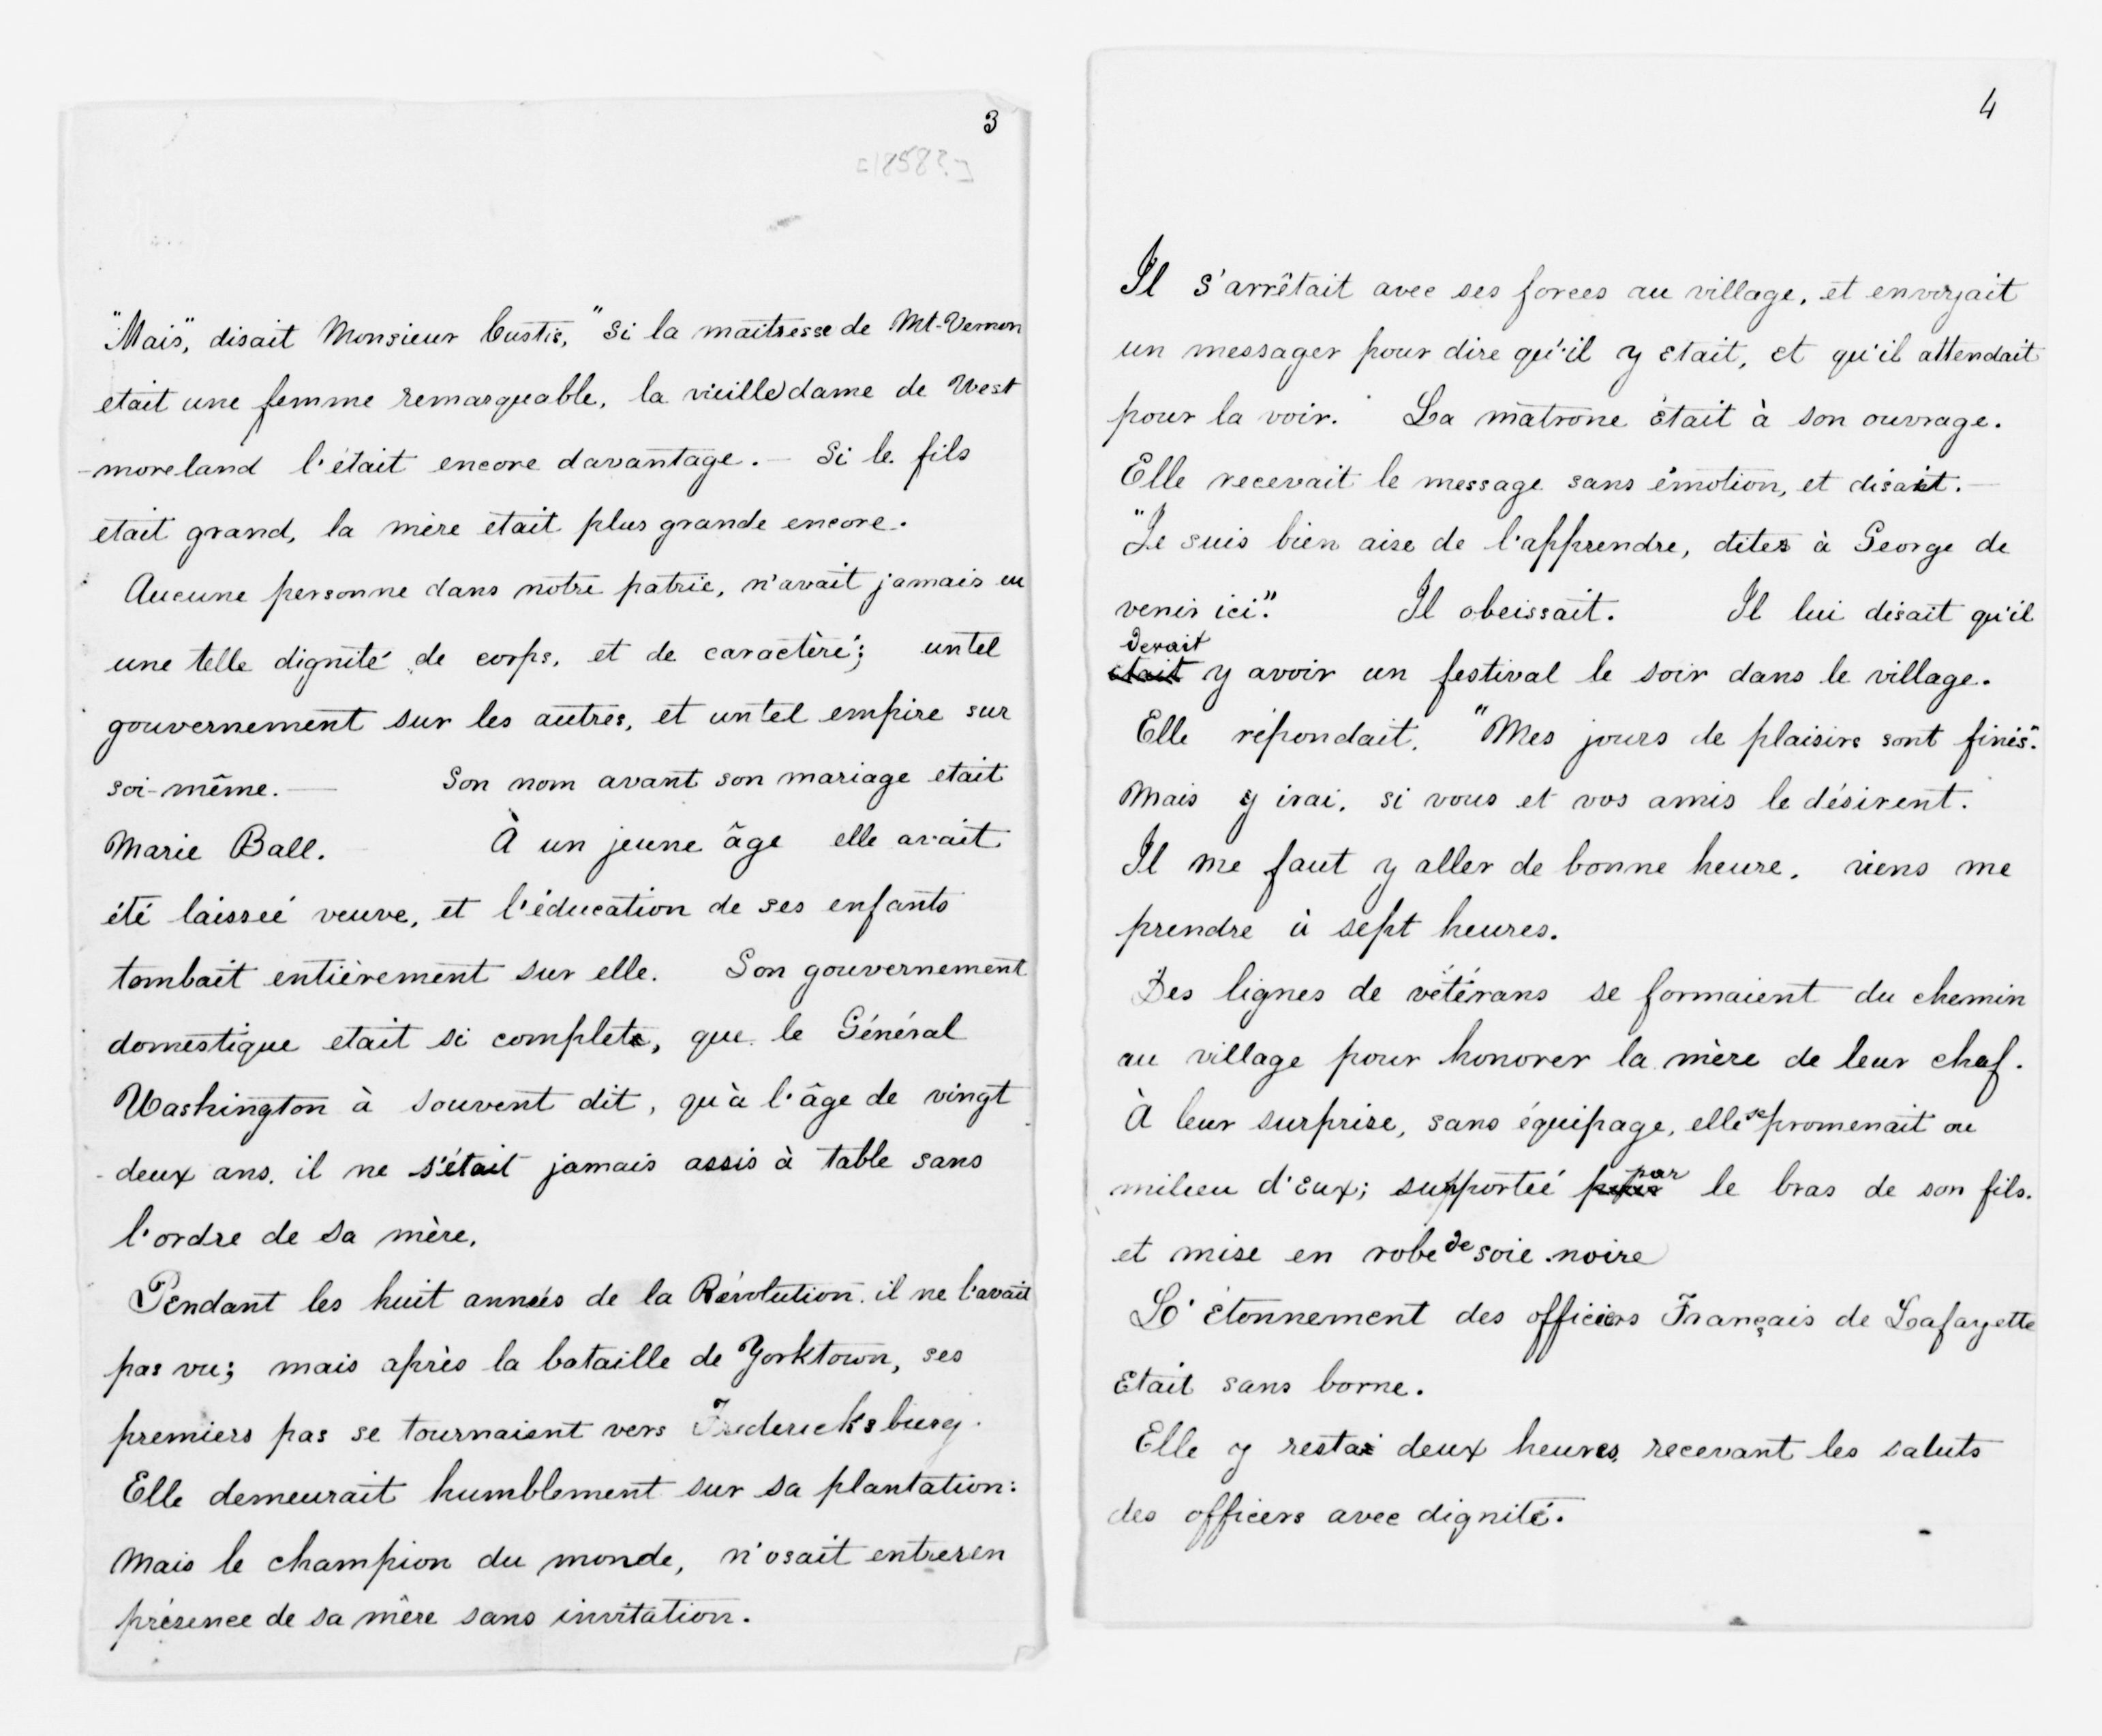 3
"Mais", disait Monsieur Custis, "Si la maitresse de Mt-Vernon
etait une femme remarquable, la vieille dame de West
-moreland l'était encore davantage.— Si le fils
etait grand, la mère etait plus grande encore.
Aucune personne dans notre patrie, n'avait jamais eu
une telle dignité de corps, et de caractère; un tel
gouvernement sur les autres, et un tel empire sur
soi-même.— Son nom avant son mariage etait
Marie Ball. À un jeune âge elle avait
été laisseé veuve, et l'éducation de ses enfants
tombait entièrement sur elle. Son gouvernement
domestique etait si complet, que le Général
Washington à souvent dit, qu'à l'âge de vingt
-deux ans, il ne s'était jamais assis à table sans
l'ordre de sa mère.
Pendant les huit anneés de la Révolution il ne l'avait
pas vu; mais après la bataille de Yorktown, ses
premiers pas se tournaient vers Fredericksburg.
Elle demeurait humblement sur sa plantation:
Mais le champion du monde, n'osait entrer en
présence de sa mère sans invitation.
4
Il s'arrêtait avec ses forces au village, et envoyait
un messager pour dire qu'il y etait, et qu'il attendait
pour la voir. La matrone était à son ouvrage.
Elle recevait le message sans émotion, et disait.—
"Je suis bien aise de l'apprendre, dites à George de
venir ici." Il obeissait. Il lui disait qu'il
devait
était y avoir un festival le soir dans le village.
Elle répondait. "Mes jours de plaisirs sont finis".
Mais y irai, si vous et vos amis le désirent.
Il me faut y aller de bonne heure, viens me
prendre à sept heures.
Des lignes de vétérans se formaient du chemin
au village pour honorer la mère de leur chef.
À leur surprise, sans équipage, elle se promenait au
milieu d'Eux; supporteé par le bras de son fils.
et mise en robe de soie noire
L'étonnement des officiers Français de Lafayette
Etait sans borne.
Elle y resta deux heures, recevant les saluts
des officers avec dignité.